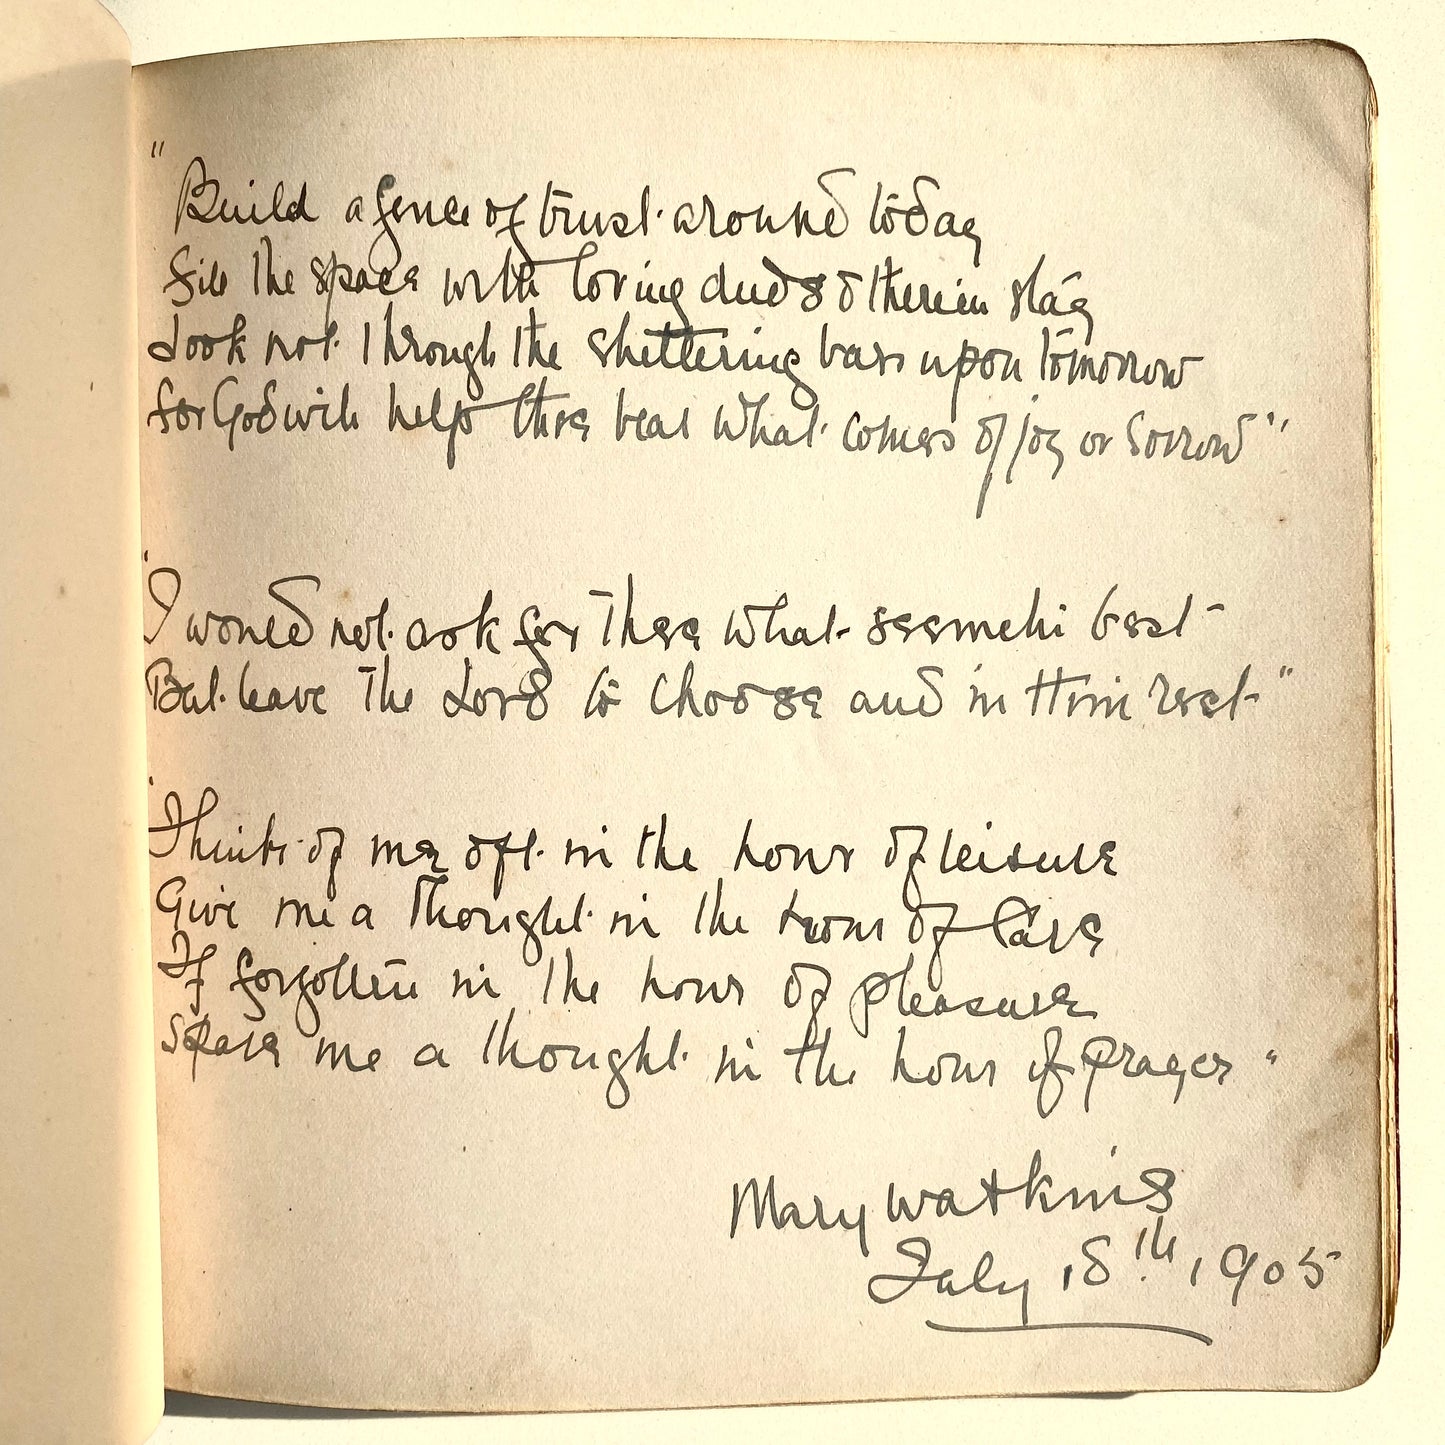 "Build a fence of trust around today
fill the space with loving deeds & therein stay
Look not through the sheltering bars upon tomorrow
for God will help thee bear what comes of joy or sorrow"
"I would not ask for thee what seemeth best
But leave the Lord to choose and in Him rest"
"Think of me oft in the hour of leisure
Give me a thought in the hour of Care
If forgotten in the hour of pleasure
Spare me a thought in the hour of prayer"
Mary Watkins
July 18th, 1905